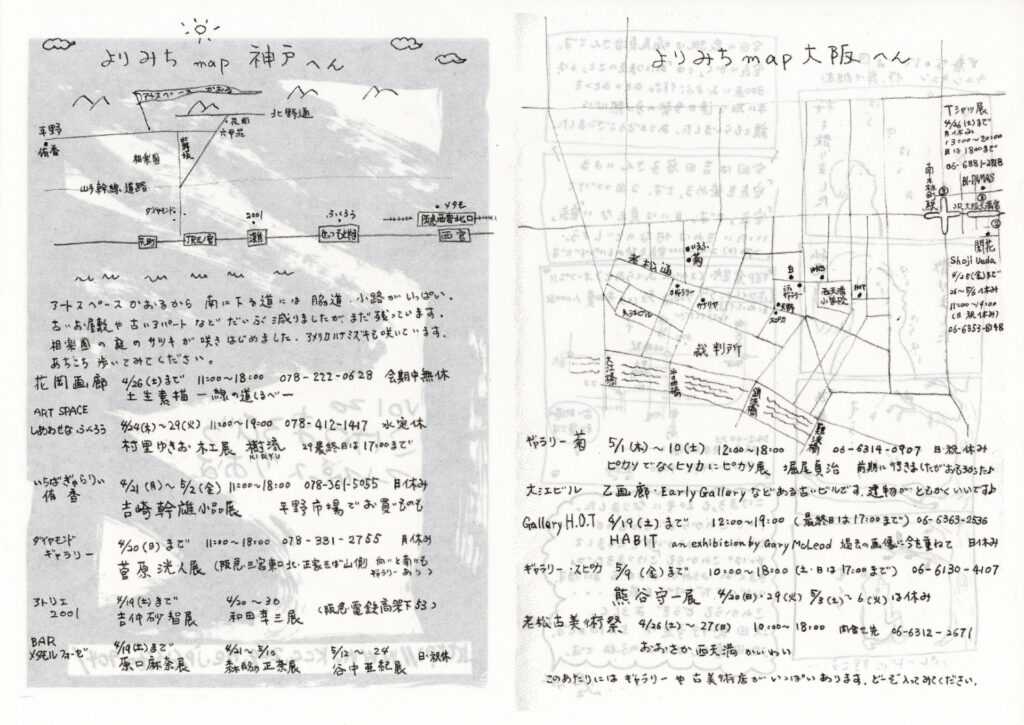 よりみち map 神戸へん
アートスペースかおる
北野通
平野
侑香
花岡
六甲荘
相楽園
山手幹線道路
ダイヤモンド
2001
ふくろう
メタモ
阪急西宮北口
元町
JR三ノ宮
灘
西宮
アートスペースかおるから 南に下る道には 脇道、小路がいっぱい。
古いお屋敷や古いアパートなど だいぶ減りましたがまだ残っています。
相楽園の庭のサツキが咲きはじめました。アメリカハナミズキも咲いています。
あちこち歩いてみてください。
花岡画廊 4/26(土)まで 11:00~18:00 078-222-0628 会期中無休
土生素描 ー線の道しるべー
ART SPACE
しあわせなふくろう 4/24(木)~29(火) 11:00~19:00 078-412-1417 水定休
村里ゆきお・木工展 樹流 29最終日は17:00まで
KIRYU
いちばぎゃらりぃ
侑香 4/21(月)~5/2(金) 11:00~18:00 078-361-5055 日休み
吉崎幹雄小品展 平野市場でお買いものも
ダイヤモンド
ギャラリー 4/20(日)まで 11:00~18:00 078-331-2755 月休み
菅原洸人展 (阪急三宮東口北・正家そば山側 向いと南にも
ギャラリーあり)
アトリエ
2001 4/19(土)まで 4/20~30
吉仲砂智展 和田幸三展 (阪急電鉄高架下53)
BAR
メタモルフォーゼ 4/19(土)まで 4/21~5/10 5/12~24 日・祝休
原口麻奈展 森脇正奈展 谷中亜紀展
よりみち map 大阪へん
Tシャツ展
4/26(土)まで
月休み
13:00~20:00
日は18:00まで
06-6881-2818
南森町駅
JR大阪天満宮
閑花
Shoji Ueda
4/25(金)まで
26~5/6休み
11:00~19:00
(日 祝休み)
06-6353-8148
老松通
菊
ギャラリー
大江ビル
西天満
小学校
HOT
天野
スピカ
裁判所
大江橋
水晶橋
鉾流橋
難波橋
ギャラリー菊 5/1(木)~10(土) 12:00~18:00 06-6314-0907 日・祝休み
ピカソでなくヒツカにピカソ展 堀尾貞治
大江ビル 乙画廊・Early Galleryなどある古いビルです。建物がともかくいいです♪
Gallery H.O.T 4/19(土)まで 12:00~19:00 (最終日は17:00まで) 06-6363-2536
HABIT an exhibition by Gary McLeod 過去の画像に今を重ねて 日休み
ギャラリー・スピカ 5/9(金)まで 10:00~18:00 (土・日は17:00まで) 06-6130-4107
熊谷守一展 4/20(日)・29(火) 5/3(土)~6(火)は休み
老松古美術祭 4/26(土)~27(日) 10:00~18:00 問合せ先 06-6312-2671
おおさか西天満かいわい
このあたりには ギャラリーや古美術店が いっぱいあります。どーぞ入ってみてください。